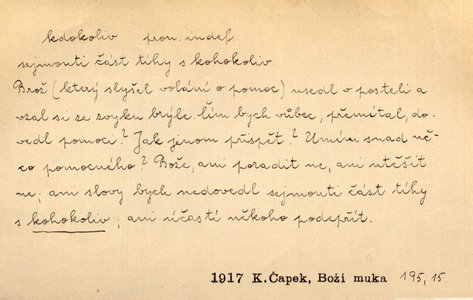 kdokoliv pron. indef.
sejmouti část tíhy s kohokoliv
Brož (který slyšel volání o pomoc) usedl v posteli a
vzal si ze zvyku brýle. Čím bych vůbec, přemítal, do-
vedl pomoci? Jak jenom přispět? Umím snad ně-
co pomocného? Bože, ani poradit ne, ani utěšit
ne; ani slovy bych nedovedl sejmouti část tíhy
s kohokoliv; ani účastí někoho podepřít.
1917 K.Čapek, Boží muka 195,15